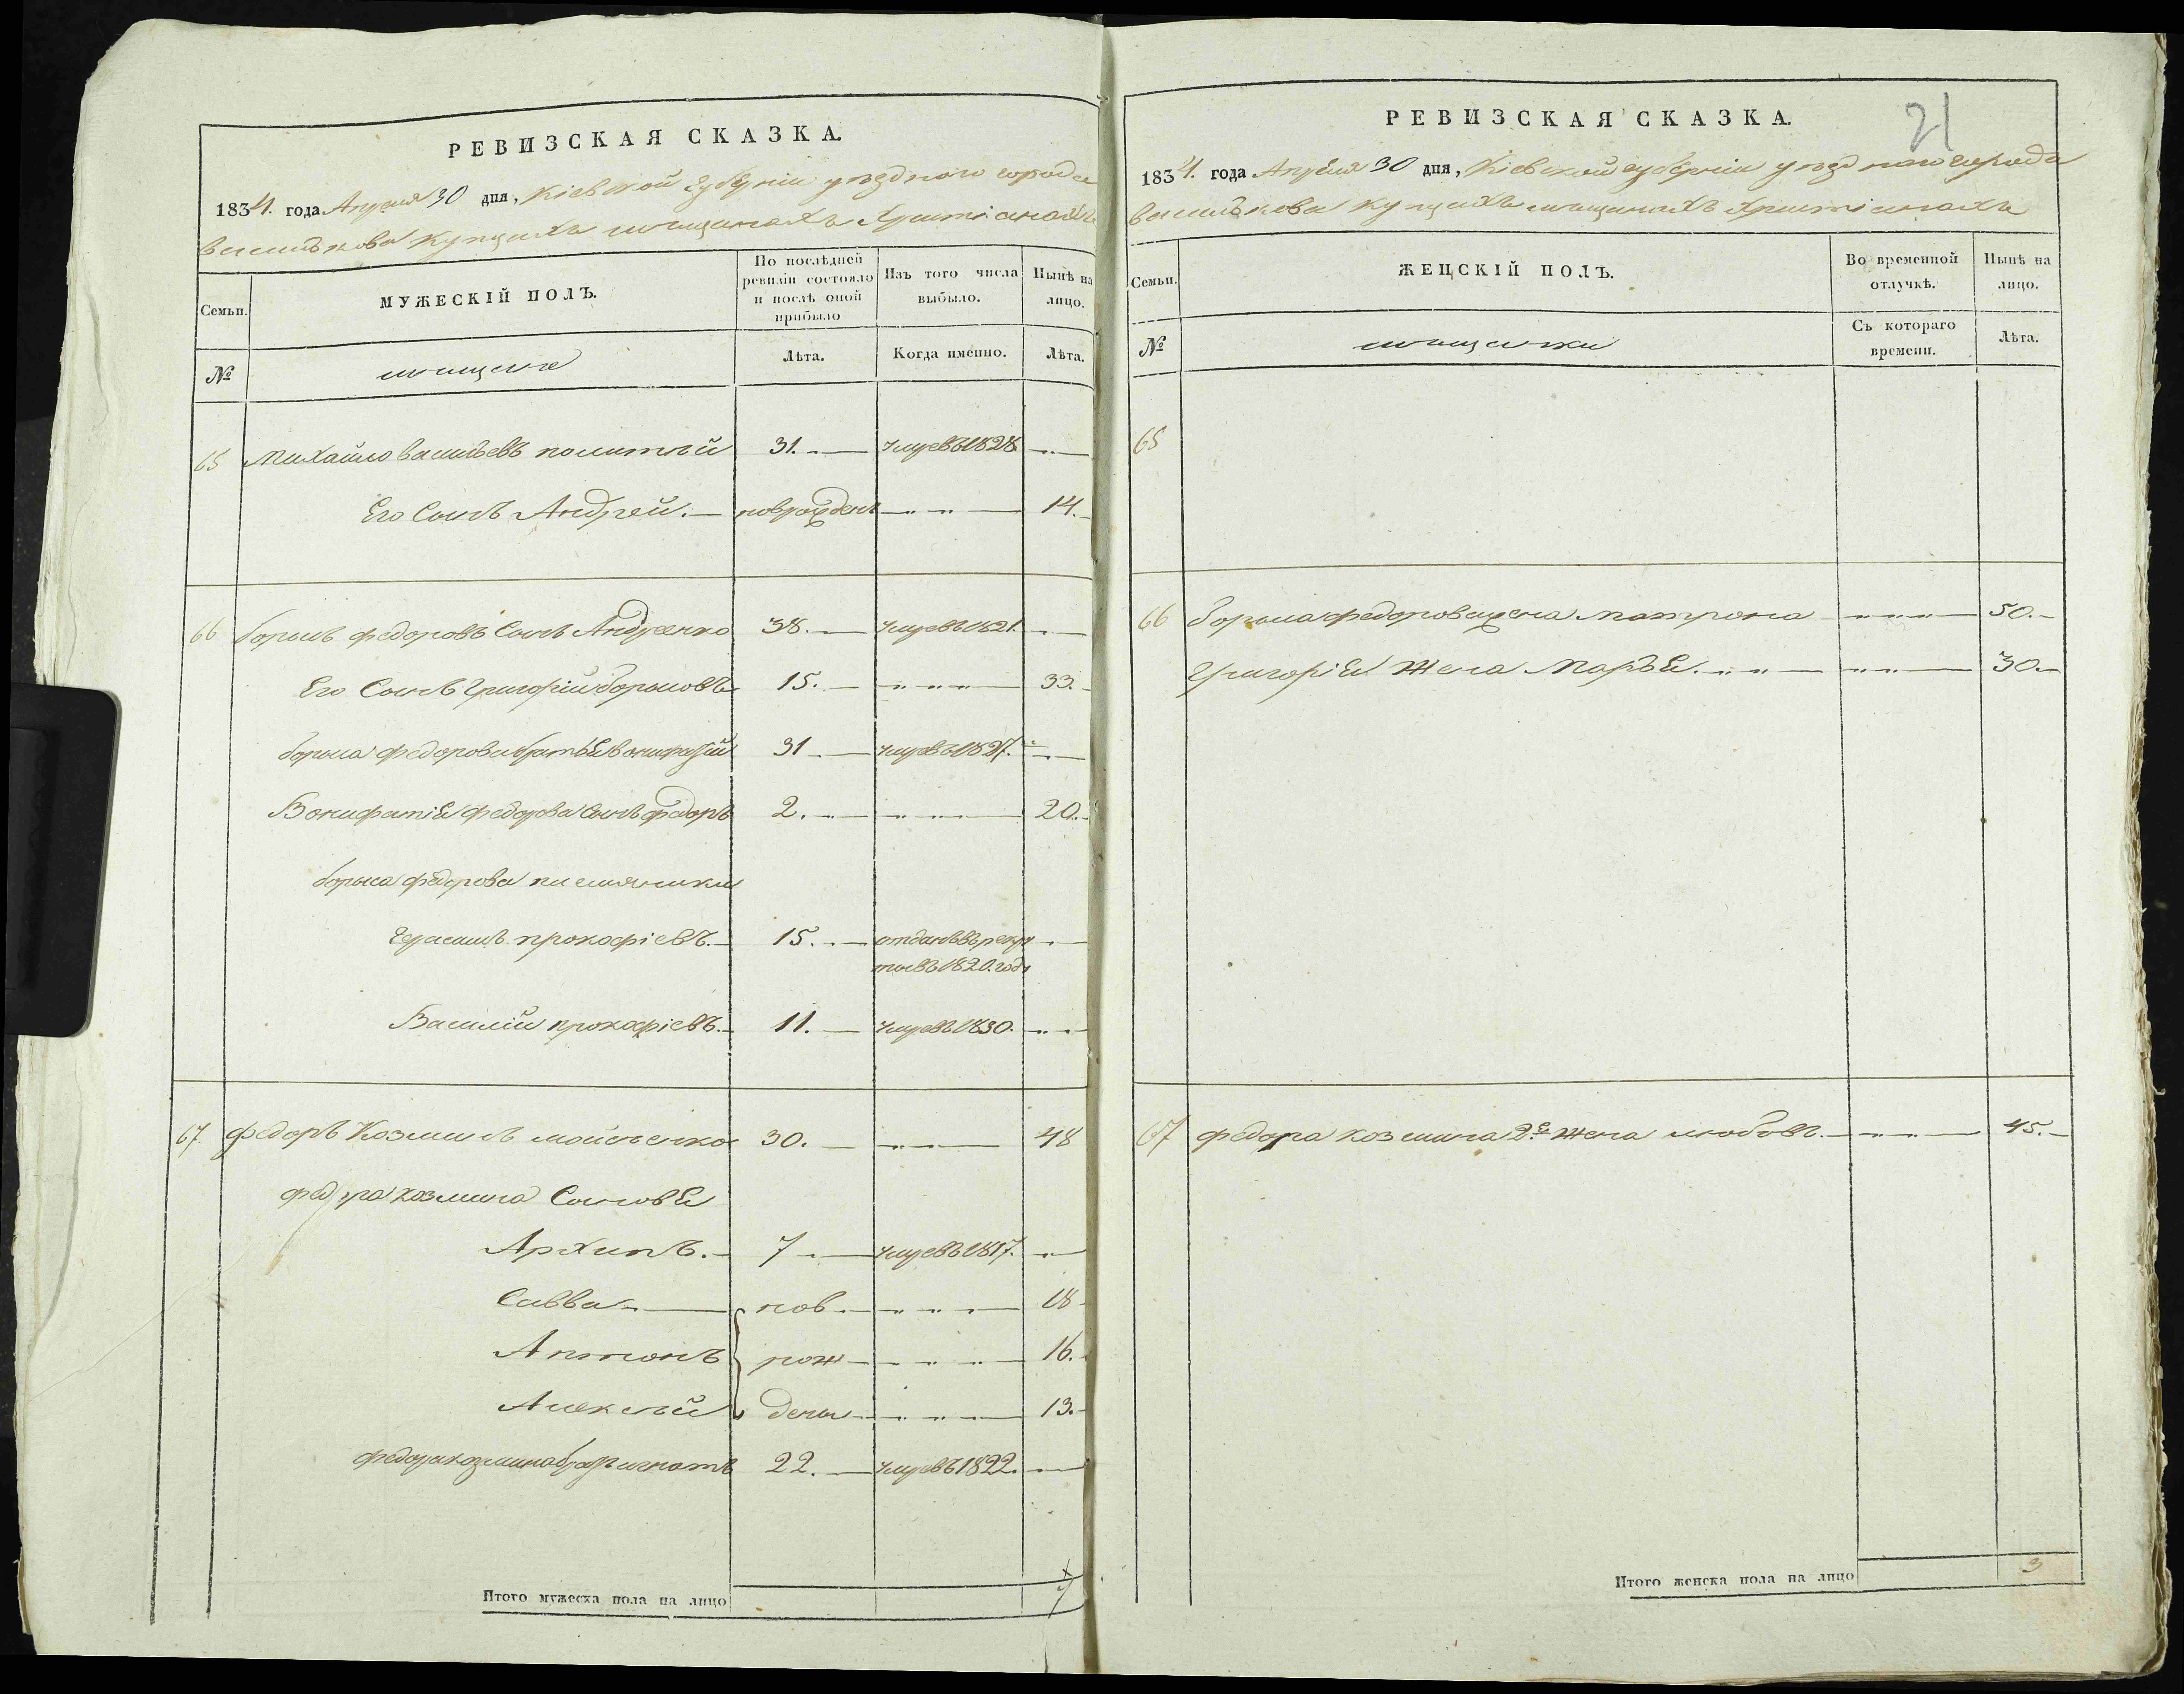 РЕВИЗСКАЯ СКАЗКА.
1834. года Апреля 30 дня, Кіевской Губерніи уезднаго города
василькова Купцахъ мещанахъ Христіанахъ
Семьи.
МУЖЕСКІЙ ПОЛЪ.
По послѣдней ревизіи состояло и послѣ оной прибыло
Изъ того числа выбыло.
Нынѣ на лицо.
№
мещане
Лѣта.
Когда именно.
Лѣта.
65 Михайло васильевъ 31. умре въ 1828
Его Сынъ Андрей. новрожденъ 14.
66 борисъ федоровъ Сынъ Андреенко 38. умре въ 1821.
Его Сынъ Григорій борисовъ 15. 33.
бориса федорова братъ вонифатій 31 умре въ 1827.
Вонифатія федорова Сынъ федоръ 2. 20.
бориса федорова племянники
Герасимъ прокофіевъ. 15. отданъ въ рекру
ты въ 1820. годе
Василій прокофіевъ. 11. умре въ 1830.
67 федоръ Козминъ мойсеенко 30. 48
федора козмина Сыновья
Архипъ. 7 умре въ 1817.
Савва нов 18
Антонъ рож 16.
Алексей дены 13.
федора козмина братъ игнатъ 22. умре въ 1822.
Итого мужеска пола на лицо 7
21
РЕВИЗСКАЯ СКАЗКА.
1834. года Апреля 30 дня, Кіевской губерніи уезднаго города
василькова Купцахъ мещанахъ Христіанахъ
Семьи.
ЖЕНСКІЙ ПОЛЪ.
Во временной отлучкѣ.
Нынѣ на лицо.
№
мещанки
Съ котораго времени.
Лѣта.
65
66 бориса федорова жена матрона 50.
Григорія жена Марья. 30.
67 федора козмина 2я жена любовъ. 45.
Итого женска пола на лицо 3